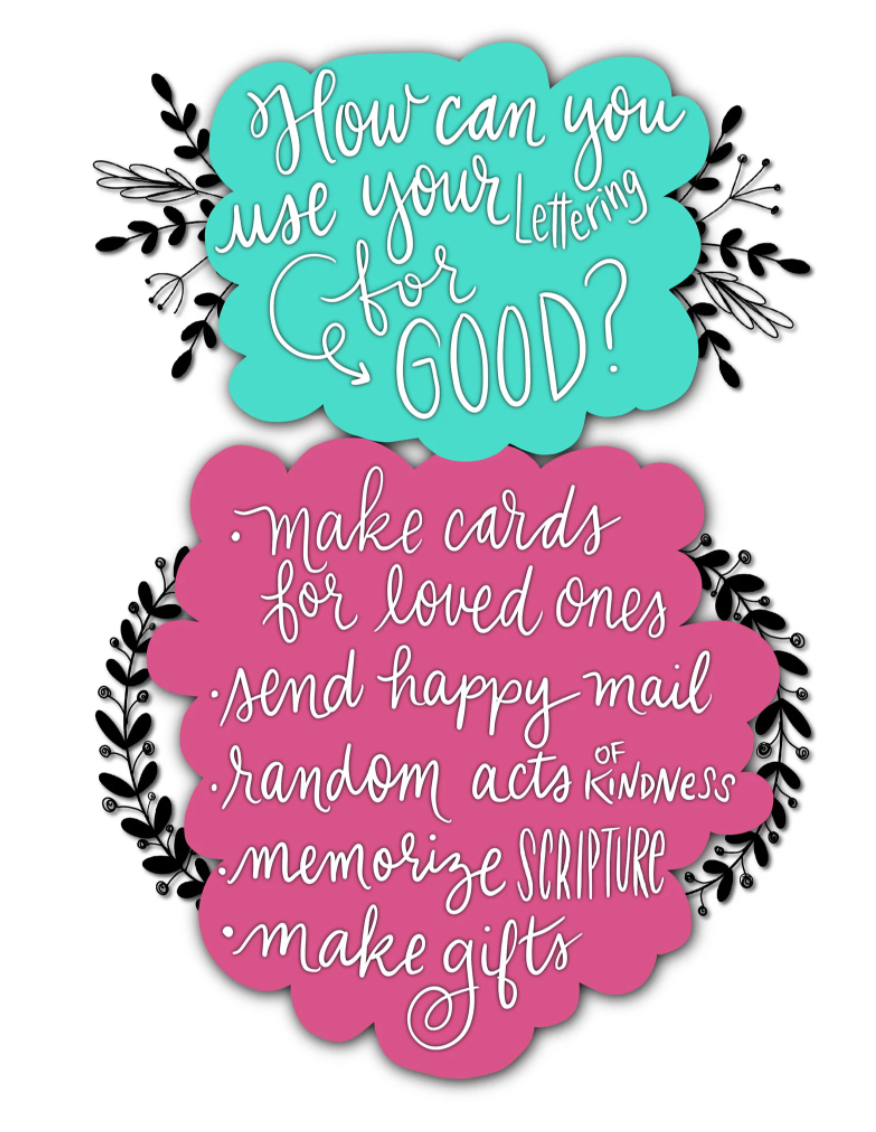 How can you
use your Lettering
for
GOOD?
• make cards
for loved ones
• send happy mail
• random acts OF KiNDNeSS
• memorize SCRIPTURe
• make gifts